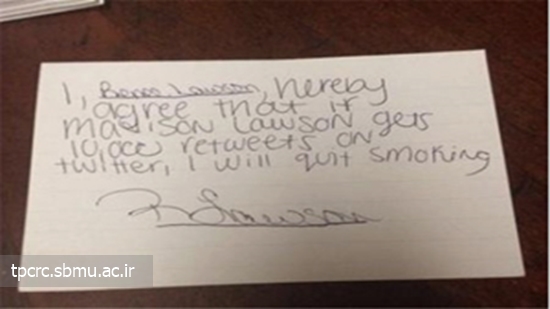 I, Lawson, hereby
agree that if
Madison Lawson gets
10,000 retweets on
twitter, I will quit smoking
Lawson
tpcrc.sbmu.ac.ir